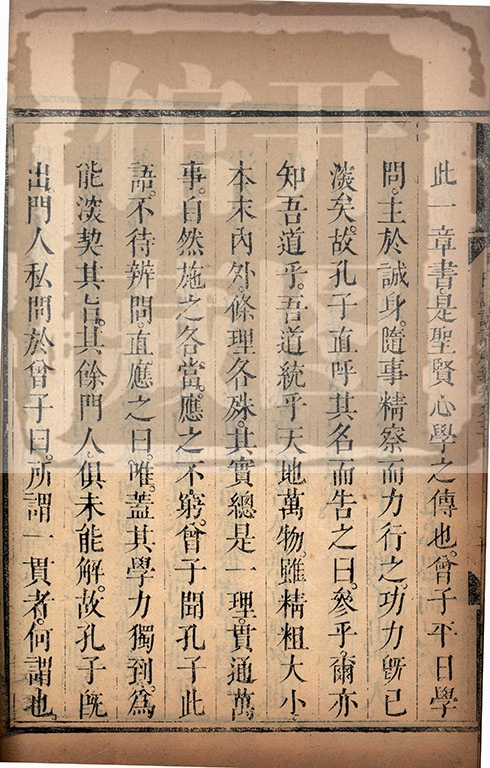 此一章書。是聖賢心學之傳也。曾子平日學
問。主於誠身。隨事精察而力行之。功力旣已
深矣。故孔子直呼其名而告之曰。參乎。爾亦
知吾道乎。吾道統乎天地萬物。雖精粗大小
本末內外。條理各殊。其實總是一理。貫通萬
事。自然施之各當。應之不窮。曾子聞孔子此
語。不待辨問。直應之曰。唯。蓋其學力獨到。爲
能深契其旨。其餘門人。俱未能解。故孔子旣
出。門人私問於曾子曰。所謂一貫者。何謂也。